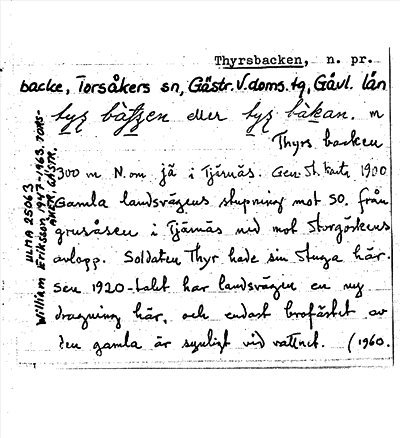 Thyrsbacken, n. pr.
backe, Torsåkers sn, Gästr.V.doms.tg, Gävl. län
eller m
Thyrs backen
300 m N.om jä i Tjärnäs. Gen.St. karta 1900
Gamla landsvägens slupning mot SO. från
grusåsen i Tjärnäs ned mot Storgöskens
avlopp. Soldaten Thyr hade sin stuga här.
Sen 1920-talet har landsvägen en ny
dragning här, och endast brofästet av
den gamla är synligt vid vattnet. (1960.
ULMA 25063
William Eriksson 1947-1963. TORS-
ÅKER, GÄSTR.